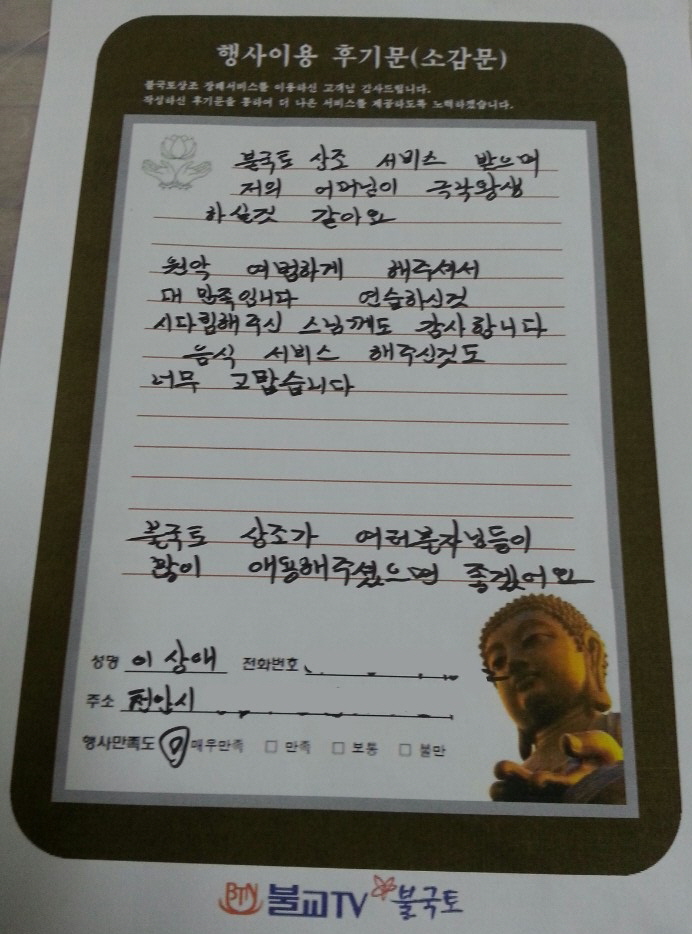 행사이용 후기문(소감문)
불국토상조 장례서비스를 이용하신 고객님 감사드립니다.
작성하신 후기문을 통하여 더 나은 서비스를 제공하도록 노력하겠습니다.
불국토 상조 서비스 받으며
저의 어머님이 극락왕생
하실것 같아요
원악 여법하게 해주셔서
대 만족입니다 연습하신것
시다림해주신 스님께도 감사합니다
음식 서비스 해주신것도
너무 고맙습니다
불국토 상조가 여러불자님들이
많이 애용해주셨으면 좋겠어요
성명 이상애 전화번호
주소 천안시
행사만족도 매우만족 □ 만족 □ 보통 □ 불만
BTN 불교TV 불국토